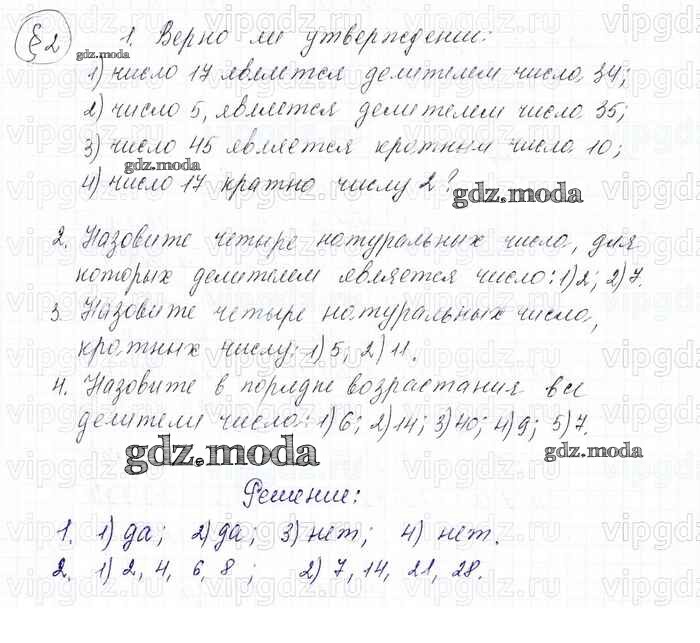 § 2
1. Верно ли утверждении:
1) число 17 является делителем числа 34;
2) число 5, является делителем числа 35;
3) число 45 является кратным числа 10;
4) число 17 кратно числу 2?
2. Назовите четыре натуральных числа, для
которых делителем является число: 1) 2; 2) 7.
3. Назовите четыре натуральных числа,
кратных числу: 1) 5; 2) 11.
4. Назовите в порядке возрастания все
делители числа: 1) 6; 2) 14; 3) 40; 4) 9; 5) 7.
Решение:
1. 1) да; 2) да; 3) нет; 4) нет.
2. 1) 2, 4, 6, 8; 2) 7, 14, 21, 28.
gdz.moda
gdz.moda
gdz.moda
gdz.moda
vipgdz.ru